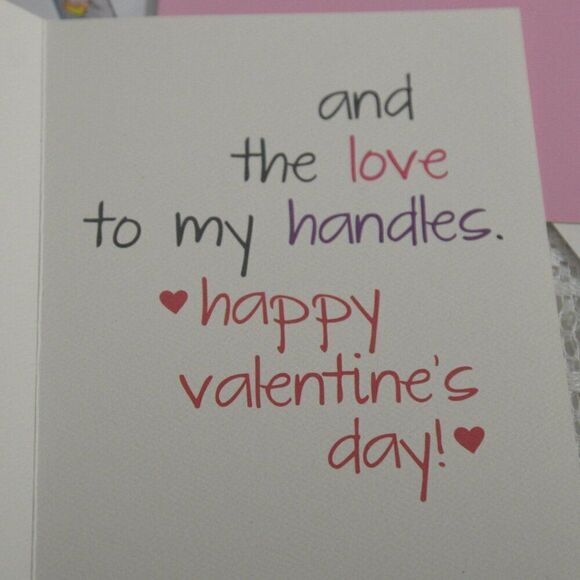 and
the love
to my handles.
happy
valentine's
day!